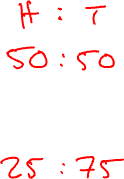 H : T
50 : 50
25 : 75